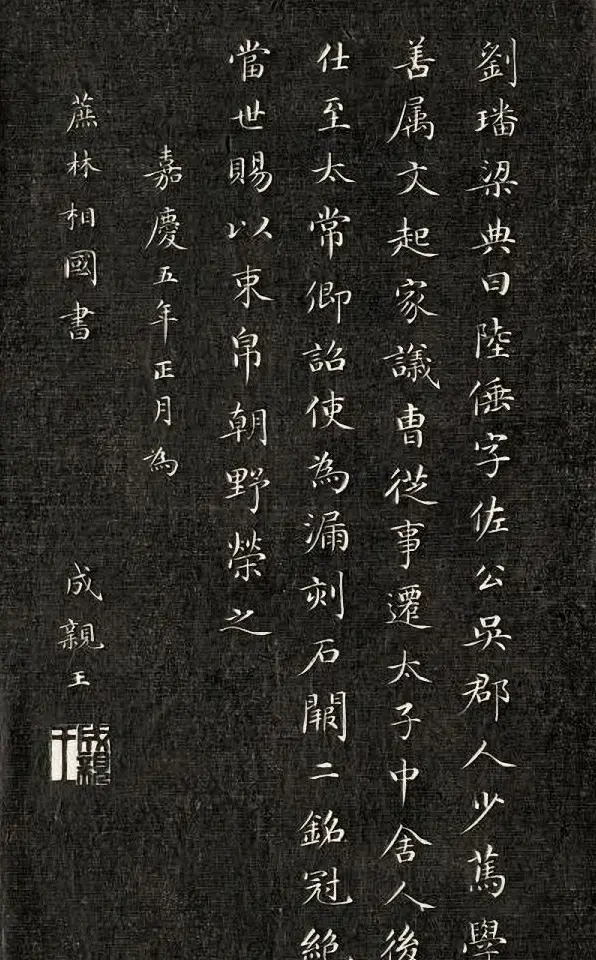 劉璠梁典曰陸倕字佐公吳郡人少篤學
善属文起家議曹從事遷太子中舍人後
仕至太常卿詔使為漏刻石闕二銘冠絶
當世賜以束帛朝野榮之
嘉慶五年正月為
蕉林相國書
成親王
成親王